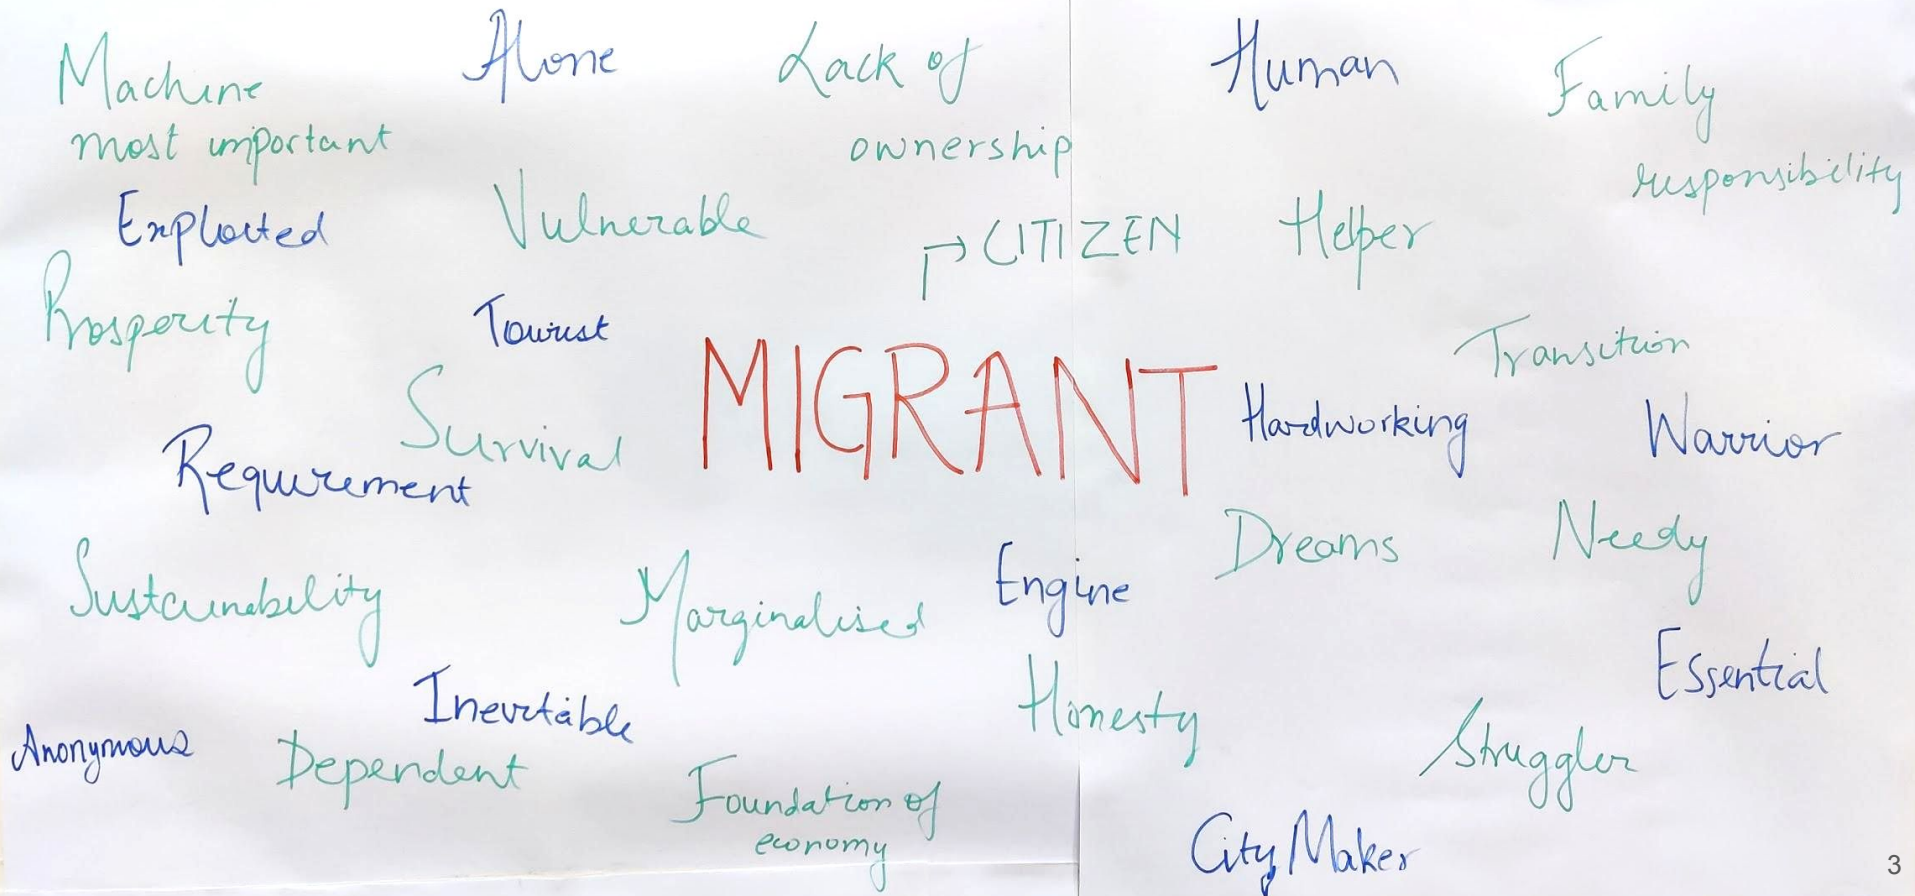 Machine
most important
Alone
Lack of
ownership
Human
Family
responsibility
Exploited
Vulnerable
CITIZEN
Helper
Prosperity
Tourist
MIGRANT
Transition
Survival
Requirement
Hardworking
Warrior
Dreams
Needy
Sustainability
Marginalised
Engine
Essential
Inevitable
Honesty
Anonymous
Dependent
Struggler
Foundation of
economy
City Maker
3